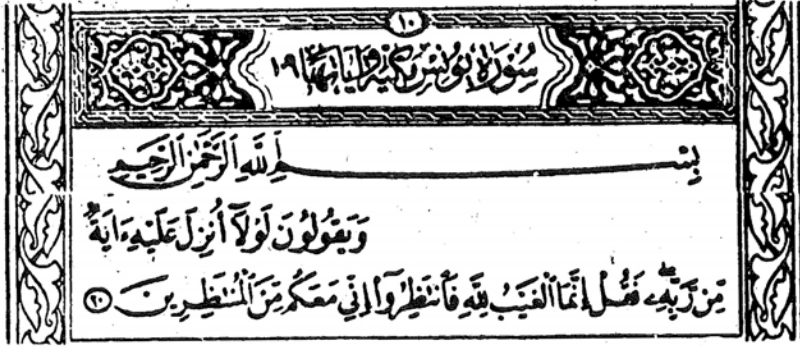 ١٠
سُورَةُ يُونُسَ مَكِّيَّة وَآيَاتُهَا ١٠٩
بِسْمِ ٱللَّهِ ٱلرَّحْمَٰنِ ٱلرَّحِيمِ
وَيَقُولُونَ لَوْلَآ أُنزِلَ عَلَيْهِ ءَايَةٌ
مِّن رَّبِّهِۦۖ فَقُلْ إِنَّمَا ٱلْغَيْبُ لِلَّهِ فَٱنتَظِرُوٓا۟ إِنِّي مَعَكُم مِّنَ ٱلْمُنتَظِرِينَ ٢٠